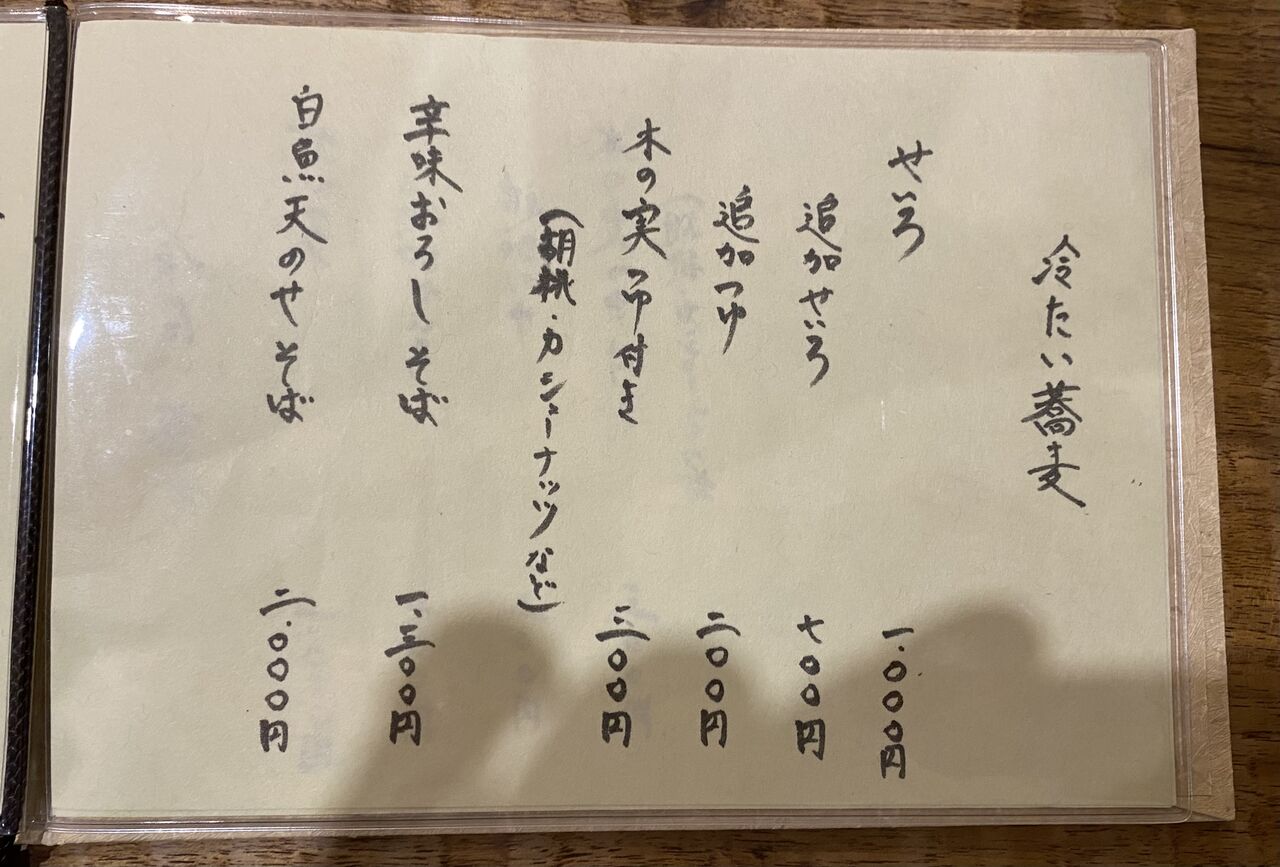 冷たい蕎麦
せいろ 一、〇〇〇円
追加せいろ 七〇〇円
追加つゆ 二〇〇円
木の実つゆ付き 三〇〇円
(胡桃・カシューナッツなど)
辛味おろしそば 一、三〇〇円
白魚天のせそば 二、〇〇〇円